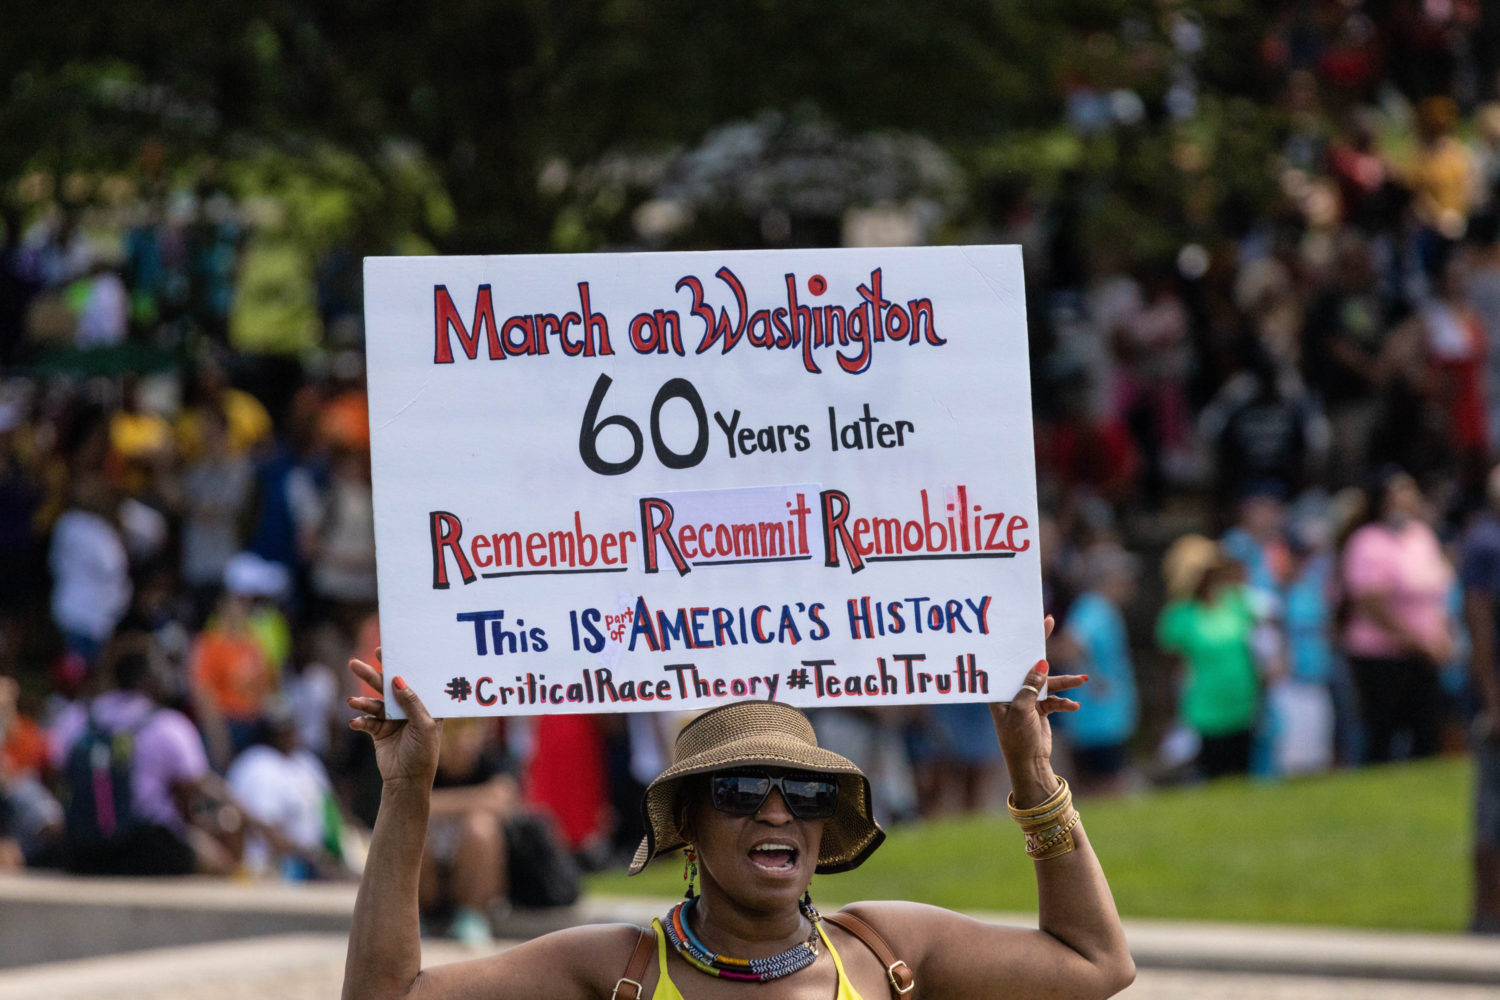 March on Washington
60 Years later
Remember Recommit Remobilize
This IS part of AMERICA'S HISTORY
#CriticalRaceTheory #TeachTruth